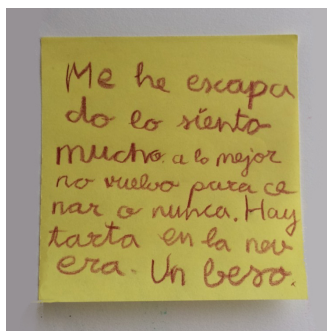 Me he escapa
do lo siento
mucho. a lo mejor
no vuelvo para ce
nar o nunca. Hay
tarta en la nev
era. Un beso.